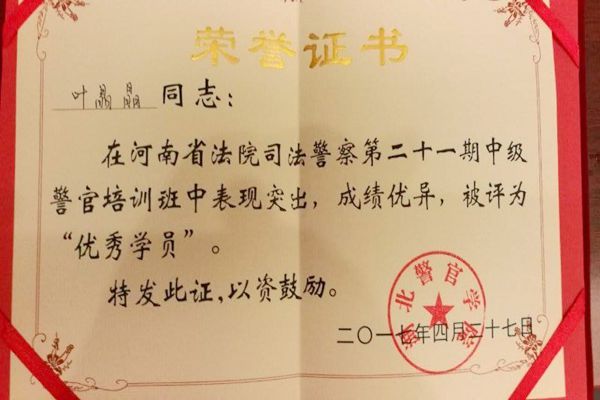 荣誉证书
叶晶晶 同志：
在河南省法院司法警察第二十一期中级
警官培训班中表现突出，成绩优异，被评为
“优秀学员”。
特发此证，以资鼓励。
北警官学院
二〇一七年四月二十七日